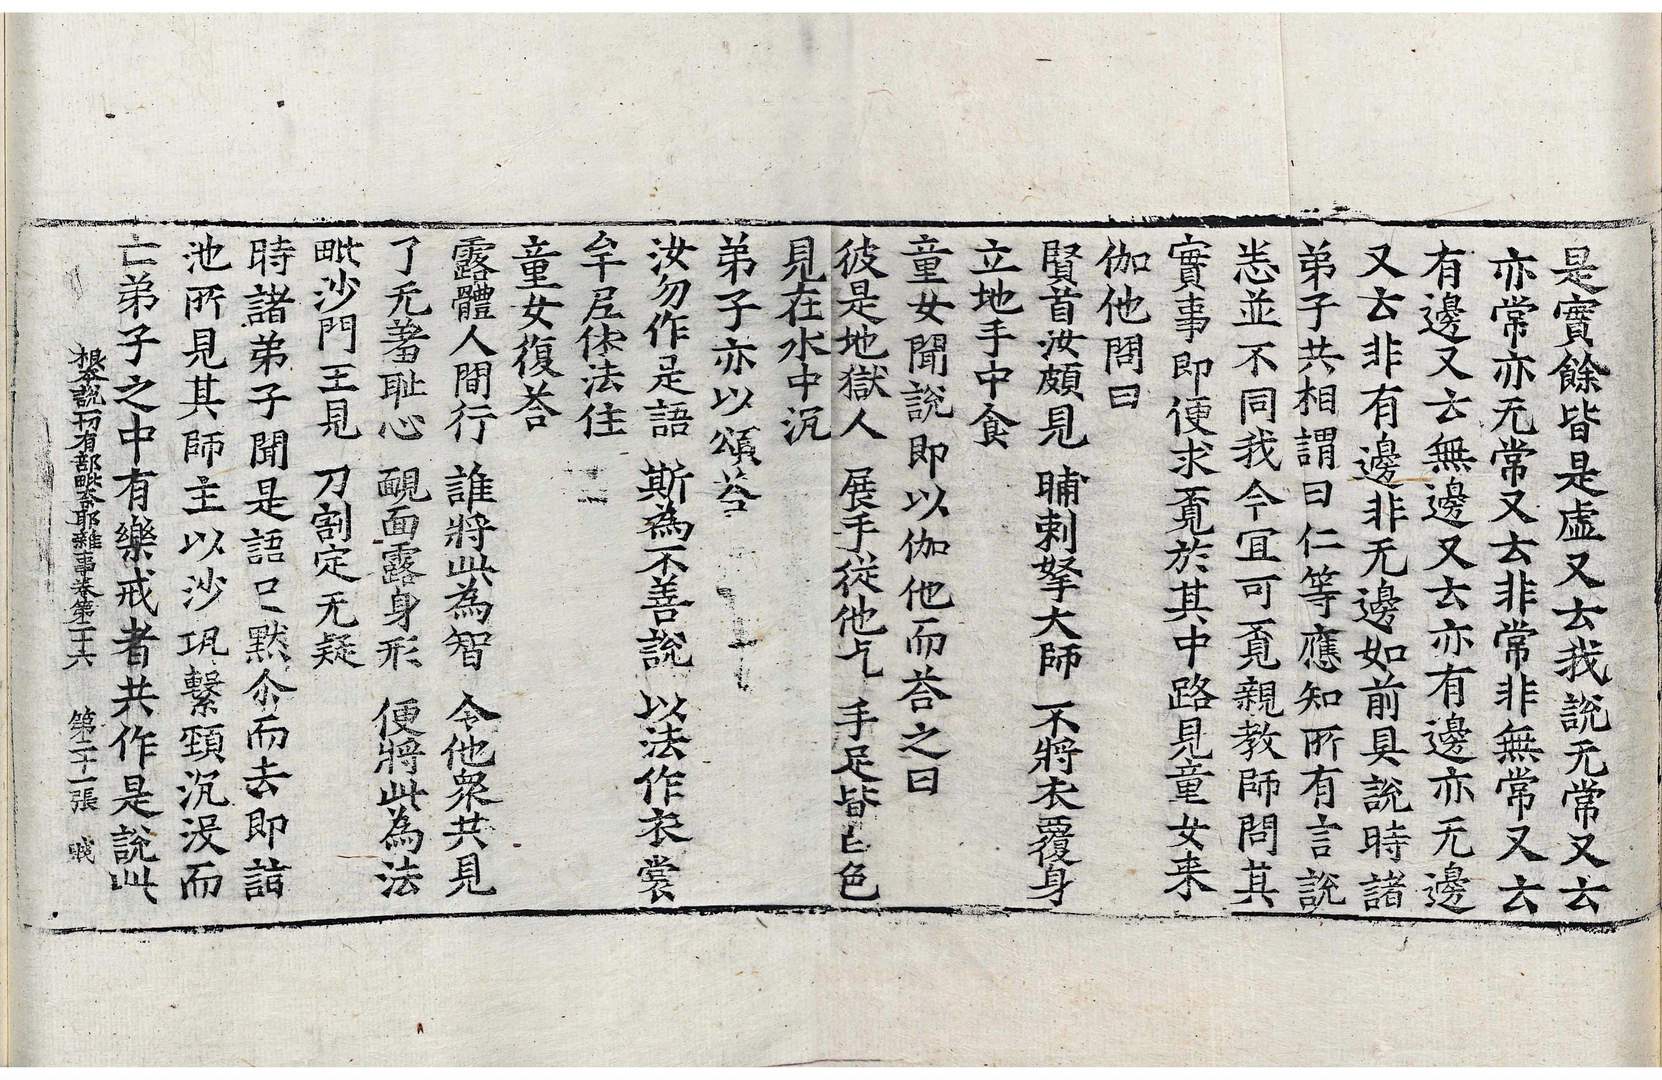 是實餘皆是虛又去我說无常又去
亦常亦无常又去非常非無常又去
有邊又去無邊又去亦有邊亦无邊
又去非有邊非无邊如前具說時諸
弟子共相謂曰仁等應知所有言說
恙並不同我今冝可覔親教師問其
實事即便求覔於其中路見童女来
伽他問曰
賢首汝頗見 晡剌拏大師 不將衣覆身
立地手中食
童女聞說即以伽他而荅之曰
彼是地獄人 展手從他乞 手足皆白色
見在水中沉
弟子亦以頌荅
汝勿作是語 斯為不善說 以法作衣裳
牟尼依法住
童女復荅
露體人間行 誰將此為智 令他衆共見
了无羞耻心 靦面露身形 便將此為法
毗沙門王見 刀割定无疑
時諸弟子聞是語已默尒而去即詣
池所見其師主以沙瓨繫頸沉没而
亡弟子之中有樂戒者共作是說此
根本說一切有部毗奈耶雜事卷第三十六 第二十一張